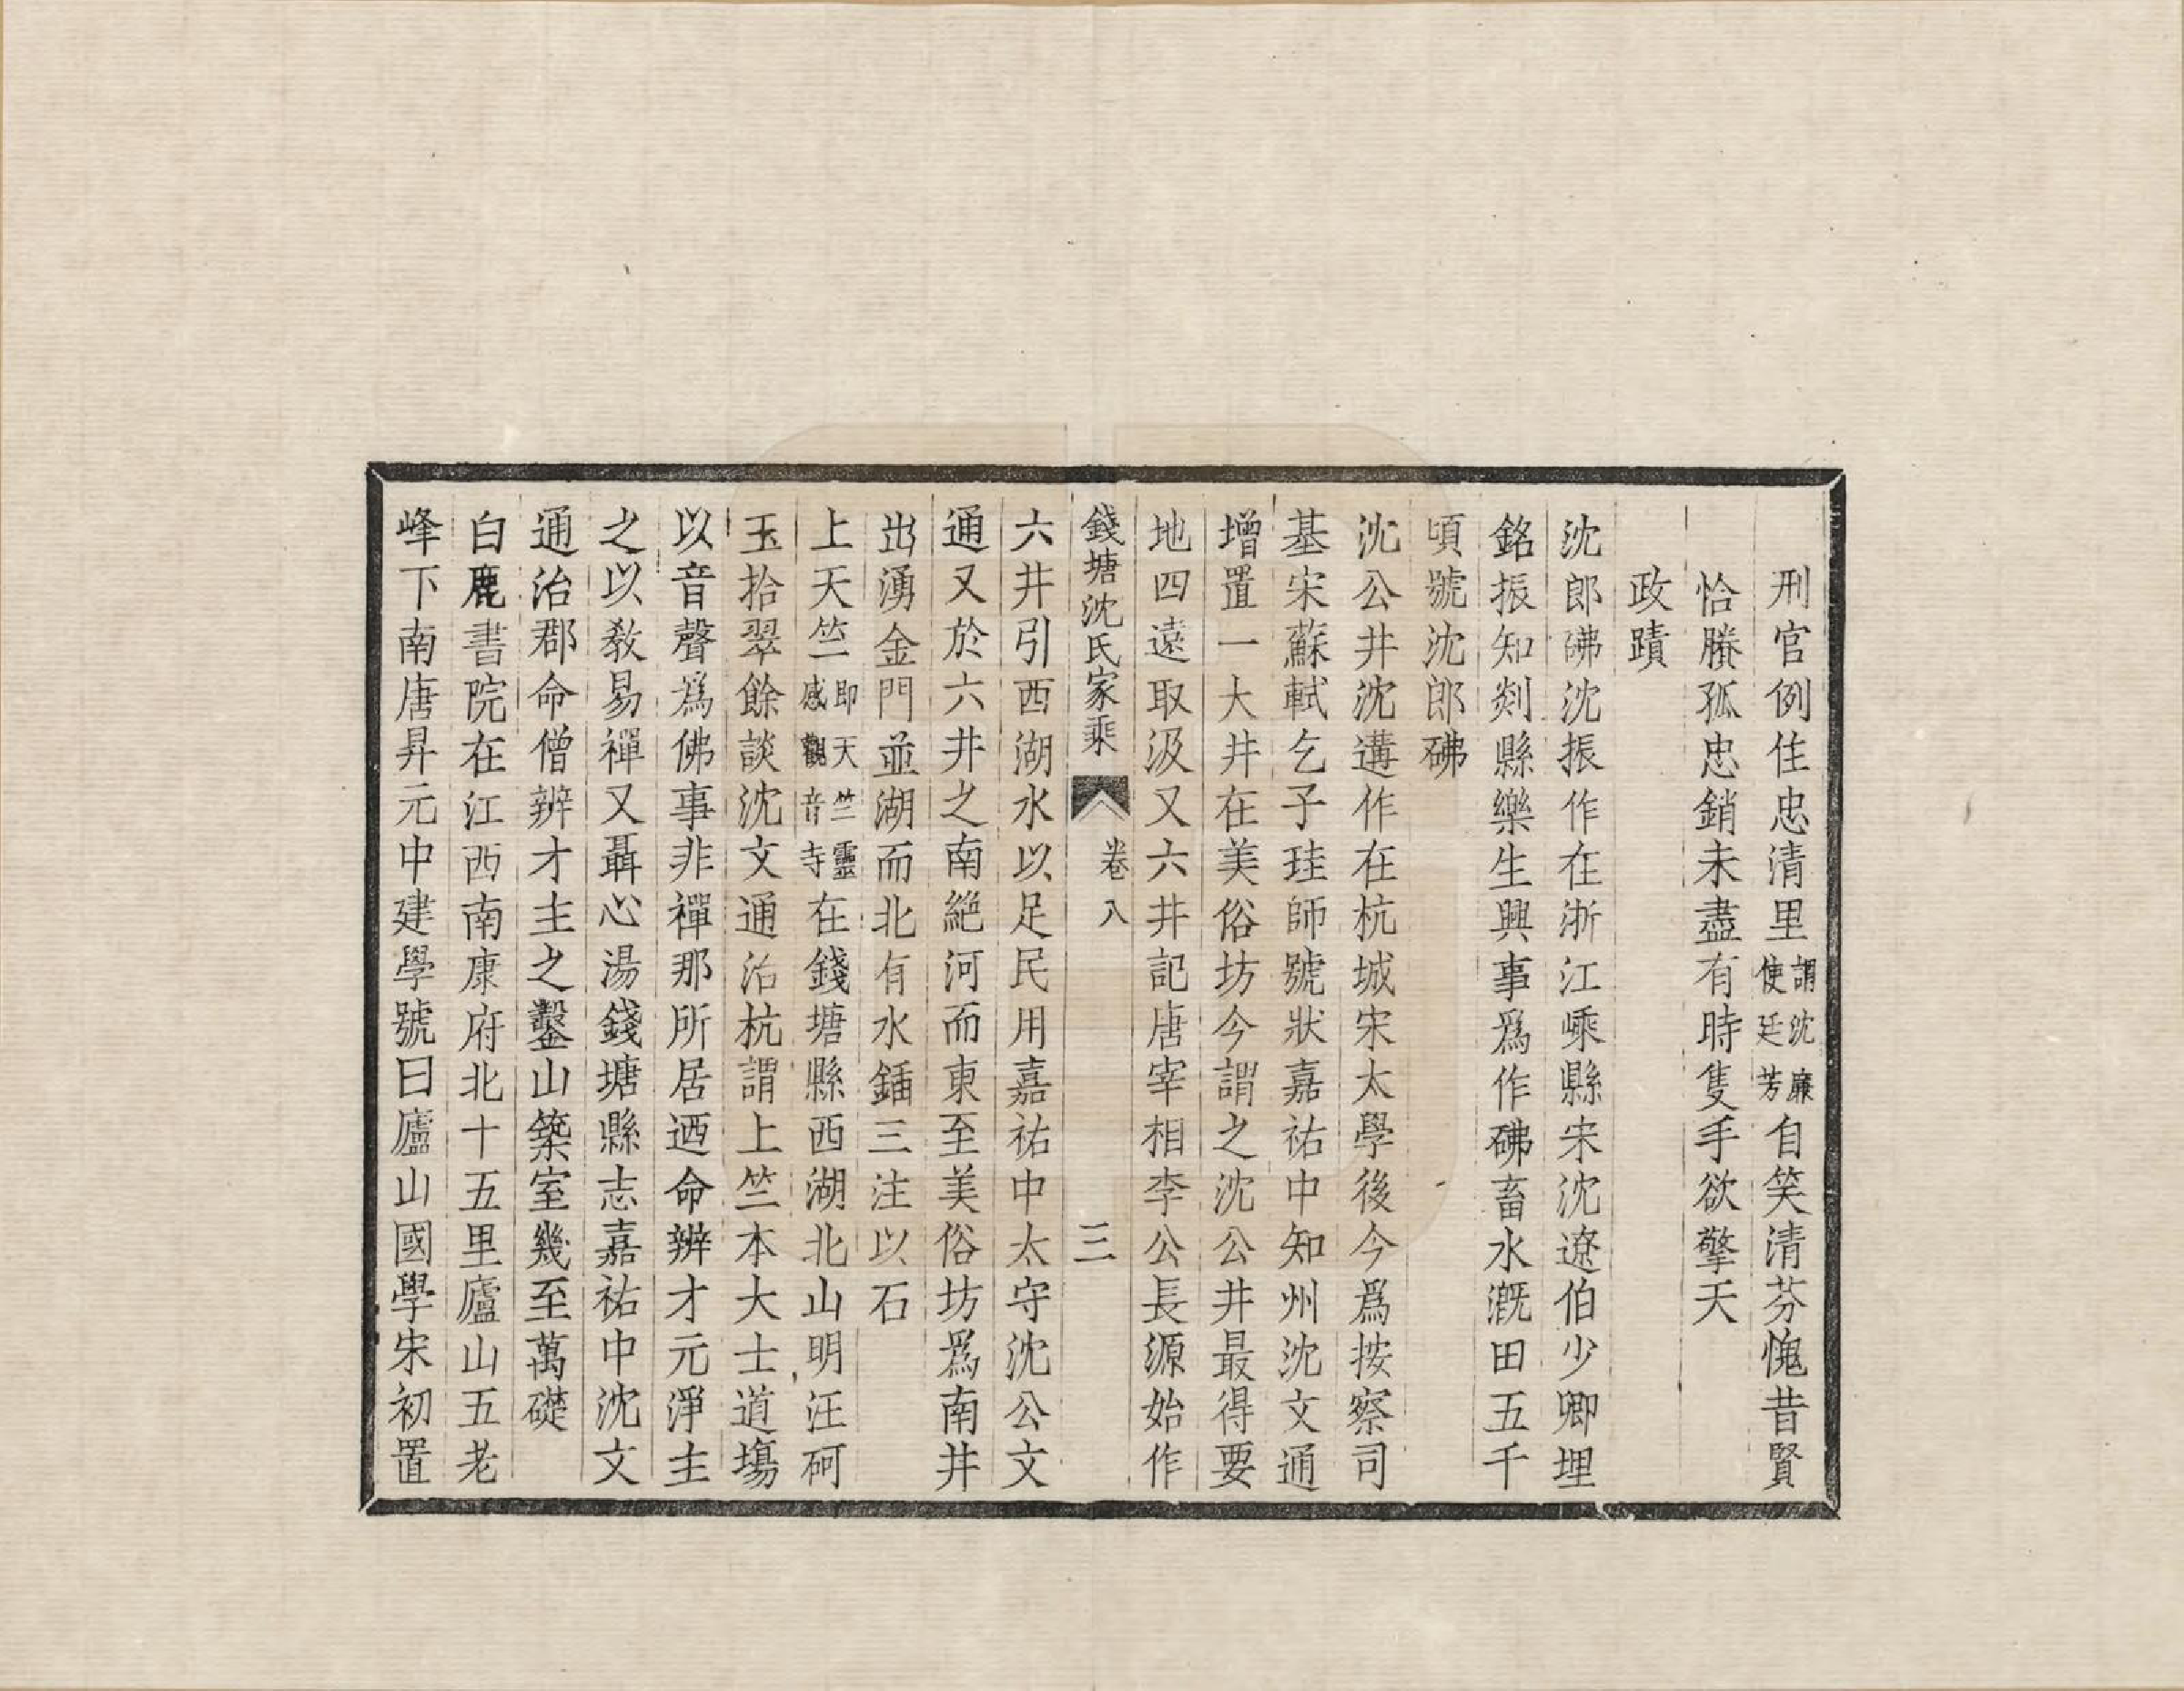 刑官例住忠清里謂沈廉使廷芳自笑清芬愧昔賢
恰賸孤忠銷未盡有時隻手欲擎天
政蹟
沈郎砩沈振作在浙江嵊縣宋沈遼伯少卿埋
銘振知剡縣樂生興事爲作砩畜水溉田五千
頃號沈郎砩
沈公井沈遘作在杭城宋太學後今爲按察司
基宋蘇軾乞子珪師號狀嘉祐中知州沈文通
增置一大井在美俗坊今謂之沈公井最得要
地四遠取汲又六井記唐宰相李公長源始作
錢塘沈氏家乘 卷八 三
六井引西湖水以足民用嘉祐中太守沈公文
通又於六井之南絕河而東至美俗坊爲南井
出湧金門並湖而北有水鍤三注以石
上天竺即天竺靈感觀音寺在錢塘縣西湖北山明汪砢
玉拾翠餘談沈文通治杭謂上竺本大士道塲
以音聲爲佛事非禪那所居迺命辨才元淨主
之以敎易禪又聶心湯錢塘縣志嘉祐中沈文
通治郡命僧辨才主之鑿山築室幾至萬礎
白鹿書院在江西南康府北十五里廬山五老
峰下南唐昇元中建學號曰廬山國學宋初置